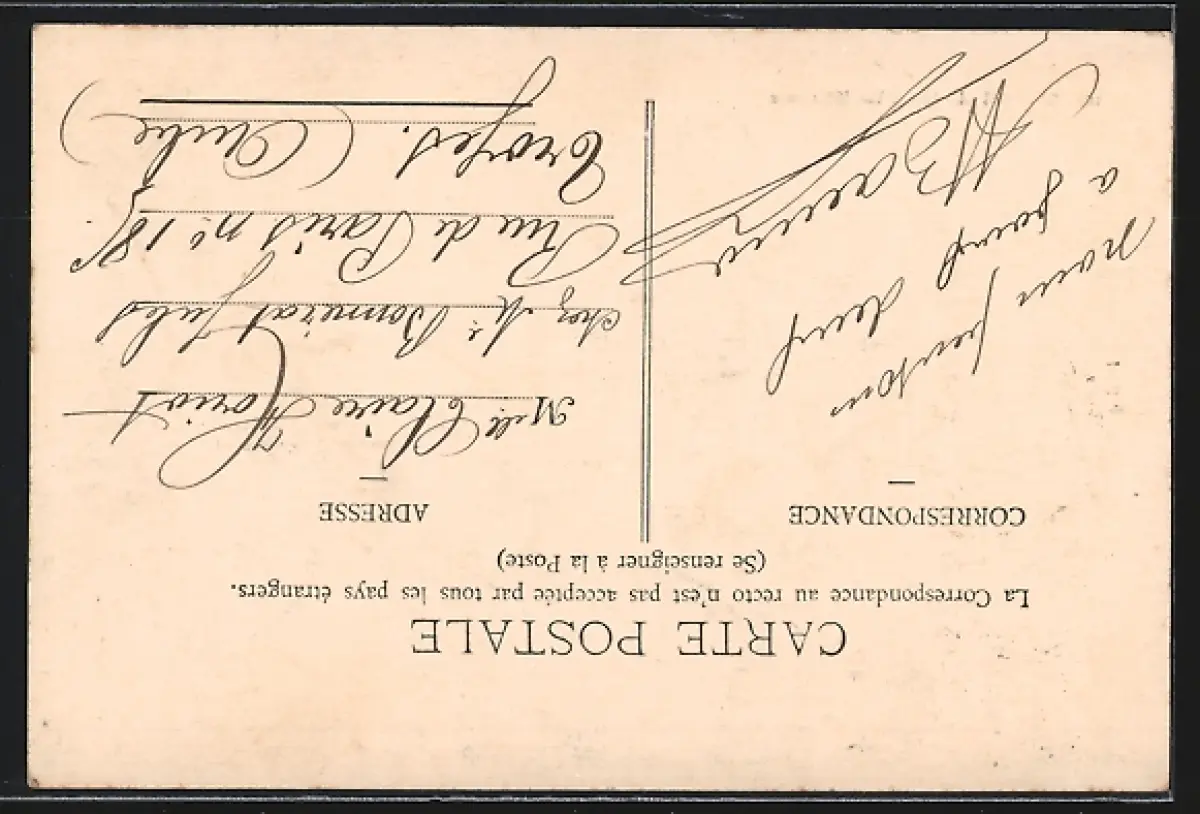 CARTE POSTALE
La Correspondance au recto n'est pas acceptée par tous les pays étrangers.
(Se renseigner à la Poste)
CORRESPONDANCE
nous pensons
a vous deux
ADRESSE
Melle Claire Horiot
chez Mr Bonnerat Jules
Rue de Paris no 18
Troyes. (Aube)